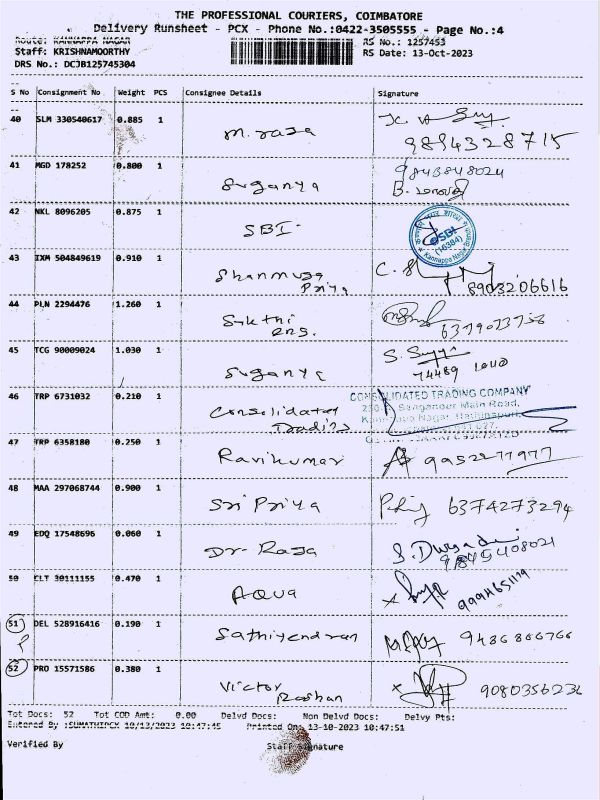 THE PROFESSIONAL COURIERS, COIMBATORE
Delivery Runsheet - PCX - Phone No.:0422-3505555 - Page No.:4
Route: KANNAPPA NAGAR
RS No.: 1257453
Staff: KRISHNAMOORTHY
RS Date: 13-Oct-2023
DRS No.: DCJB125745304
S No Consignment No Weight PCS Consignee Details Signature
40 SLM 330540617 0.885 1 M. Raja
9894328715
41 MGD 178252 0.800 1 Suganya 9843848024
B.
42 NKL 8096205 0.875 1 SBI SBI (16384) Kannappa Nagar
43 IXM 504849619 0.910 1 Shanmuga Priya 8903206616
44 PLN 2294476 1.260 1 Sakthi eng.
45 TCG 90009024 1.030 1 Suganya S.
74489
46 TRP 6731032 0.210 1 Consolidated Trading CONSOLIDATED TRADING COMPANY
Sanganoor Main Road,
Kannappa Nagar, Rathinapuri,
47 TRP 6358180 0.250 1 Ravikumar 9952277977
48 MAA 297068744 0.900 1 Sri Priya 6374273294
49 EDQ 17548696 0.060 1 Dr. Raja
50 CLT 30111155 0.470 1 Aqua
51 DEL 528916416 0.190 1 Sathiyendran 9486866766
52 PRO 15571586 0.380 1 Victor Roshan 9080356236
Tot Docs: 52 Tot COD Amt: 0.00 Delvd Docs: Non Delvd Docs: Delvy Pts:
Entered By :SUMATHIPCX 10/13/2023 10:47:45 Printed On: 13-10-2023 10:47:51
Verified By Staff Signature